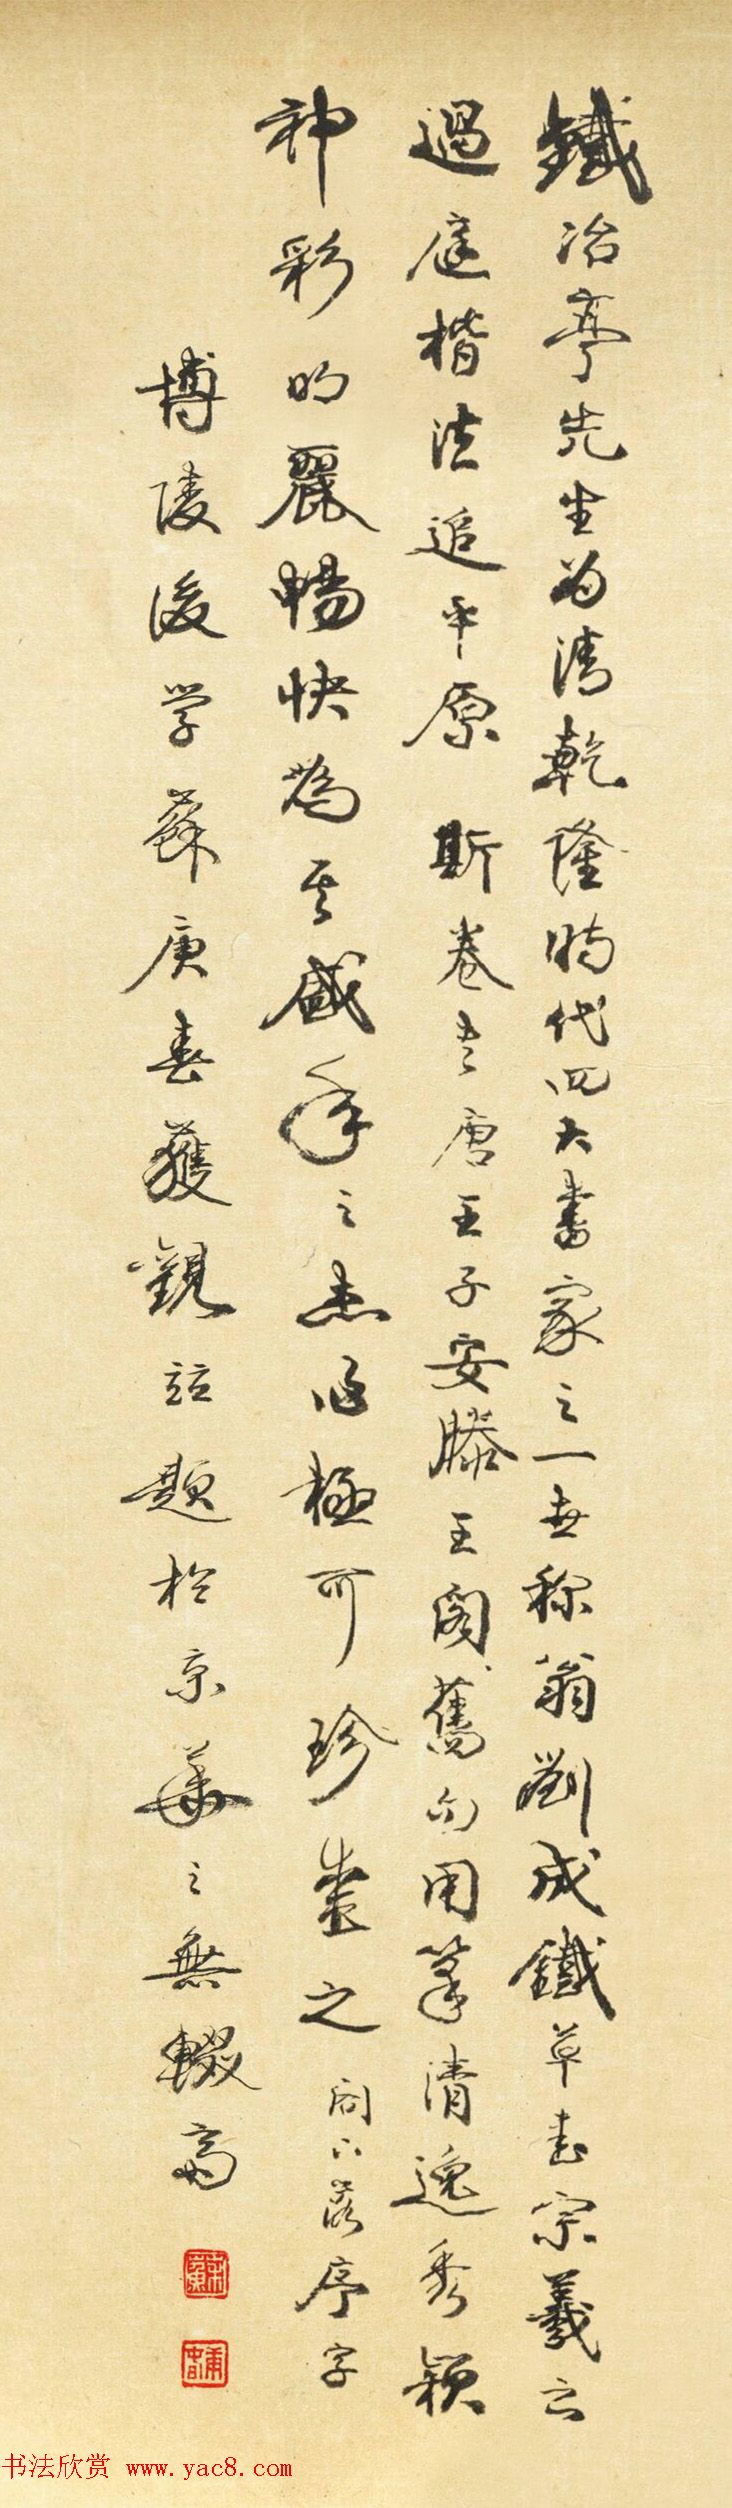 鐵冶亭先生为清乾隆時代四大書家之一世称翁劉成鐵草书宗羲之
過庭楷法追平原斯卷书唐王子安滕王阁舊句用筆清逸秀穎
神彩明麗暢快為其盛年之杰作極可珍重之阁下落序字
博陵後学蘇庚春獲觀并題於京華之無輟斋
书法欣赏 www.yac8.com